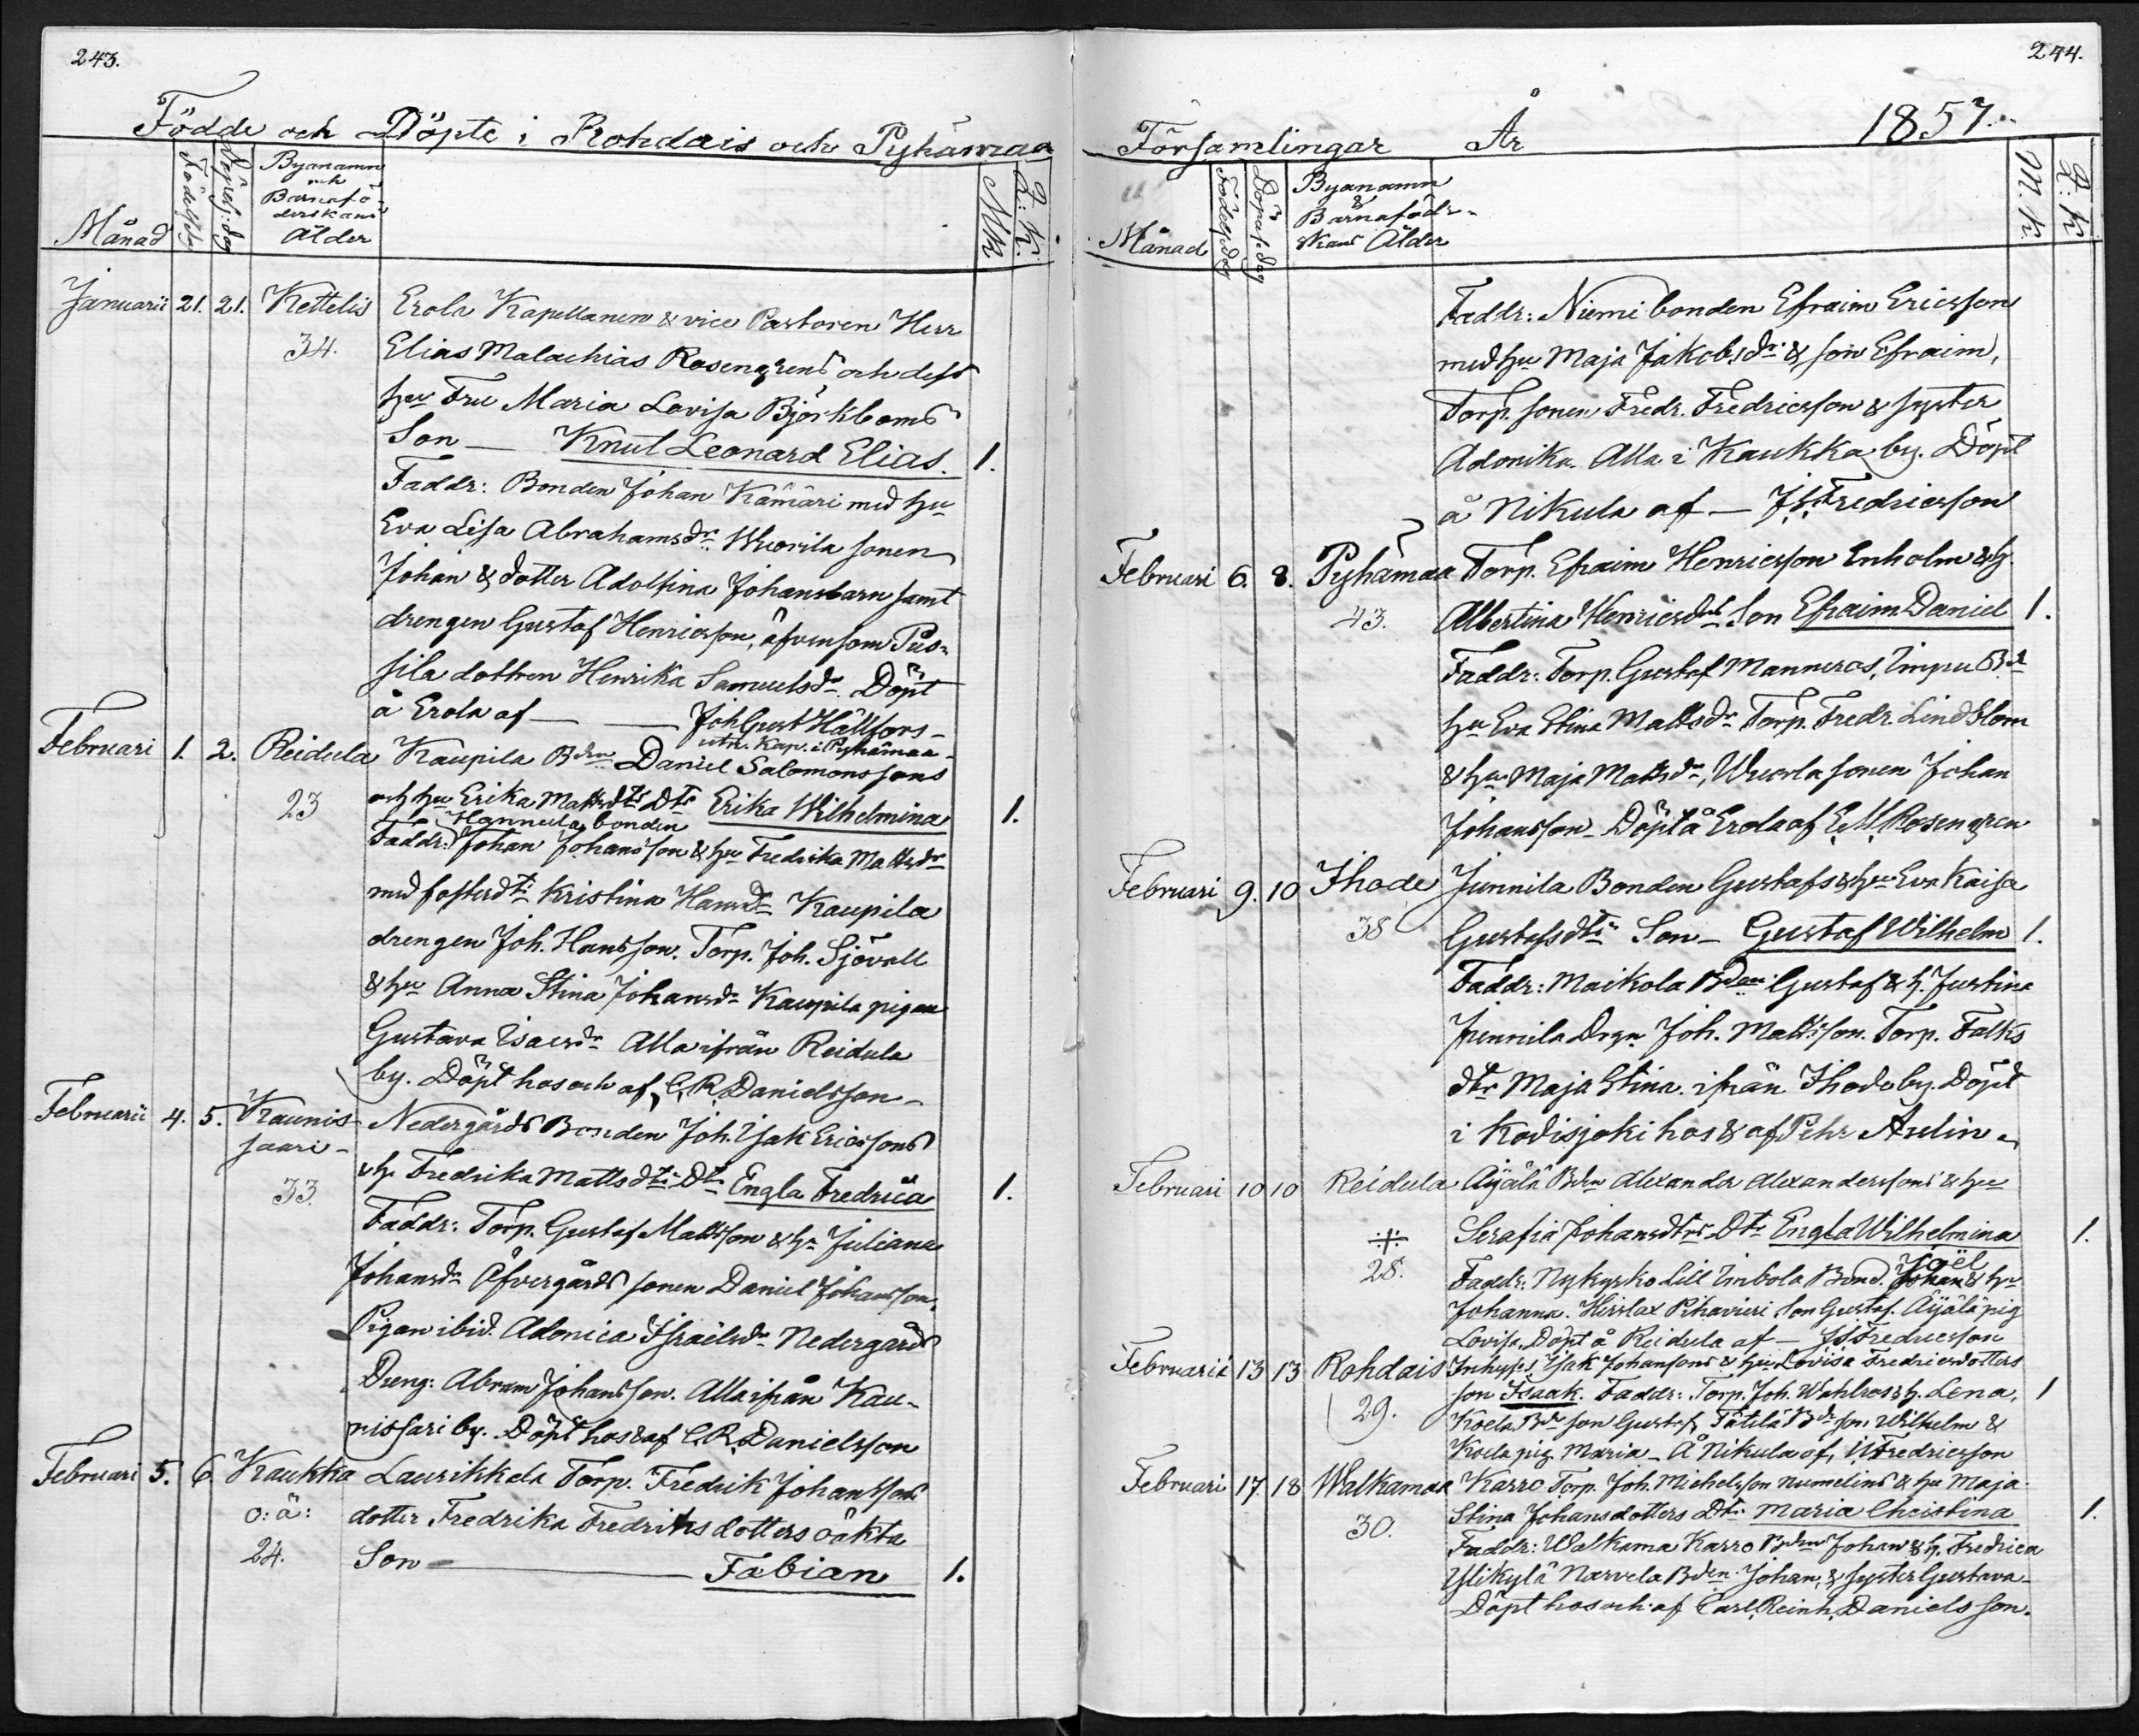 243.
Födde och Döpte i Rohdais och Pyhämaa
Månad
Födelsedag
Döpelsedag
Byanamn
och
Barnafö-
derskans
Ålder
M.K.
Q.K.
Januarii 21. 21. Kettelis Erola Kapellanen & vice Pastoren Herr
34. Elias Malachias Rosengrens och dess
hu Fru Maria Lovisa Björkboms
Son — Knut Leonard Elias. 1.
Faddr: Bonden Johan Kämäri med hu
Eva Lisa Abrahamsdr Wuorila sonen
Johan & dotter Adolfina Johansbarn samt
drengen Gustaf Henricsson, äfvensom Pus-
sila dottren Henrika Samuelsdr. Döpt
å Erola af — Joh Gust Hällfors-
utn. Kap. i Pyhämaa-
Februari 1. 2. Reidula Kaupila Bdn Daniel Salomonssons
23 och hu Erika Mattsdrs Dtr Erika Wilhelmina 1.
Hannula bonden
Faddr: Johan Johansson & hu Fredrika Mattsdr
med fosterdtr Kristina Hansdr Kaupila
drengen Joh. Hansson. Torp. Joh. Sjövall
& hu Anna Stina Johansdr Kaupila pigan
Gustava Isacsdr Alla ifrån Reidula
by. Döpt hos och af C. R. Danielsson-
Februarii 4. 5. Kaunis- Nedergårds Bonden Joh. Isak Ericssons
saari-
33. & h. Fredrika Mattsdtrs Dtr Engla Fredrica 1.
Faddr: Torp. Gustaf Mattsson & hu Juliana
Johansdr Öfvergårds sonen Daniel Johansson.
Pigan ibid. Adonica Israelsdr Nedergårds
Dreng: Abram Johansson. Alla ifrån Kau-
nissari by. Döpt hos & af C. R. Danielsson
Februari 5. 6. Kaukka Laurikkela Torp. Fredrik Johanssons
o: ä: dotter Fredrika Fredriks dotters oäkta
24. Son — Fabian 1.
244.
Församlingar År 1857.
Månad
Födelsedag
Döpelsedag
Byanamn
&
Barnafödr-
skans Ålder
M. K.
Q. K.
Faddr: Niemi bonden Efraim Ericsson
med hu Maja Jakobsdr & son Efraim,
Torp. sonen Fredr. Fredricsson & syster
Adonika. Alla i Kaukka by. Döpt
å Nikula af — J. F. Fredricsson
Februari 6. 8. Pyhämaa Torp. Efraim Henricsson Enholm & h.
43. Albertina Henricsdrs Son Efraim Daniel 1.
Faddr: Torp. Gustaf Manneros, Impu Bd
hu Eva Stina Mattsdr Torp. Fredr. Lindblom
& hu Maja Mattsdr, Wuorla sonen Johan
Johansson- Döpt å Erola af E M Rosengren
Februari 9. 10 Ihode Junnila Bonden Gustafs & hu Eva Kaisa
38 Gustafsdtrs Son- Gustaf Wilhelm 1.
Faddr: Maikola Bden Gustaf & h. Justina
Junnila Drgn Joh. Mattsson. Torp. Falks
dtr Maja Stina. ifrån Ihode by. Döpt
i Kodisjoki hos & af Pehr Aulin-
Februari 10 10 Reidula Äyälä Bdn Alexander Alexanderssons & hu
Serafia Johansdtrs Dtr Engla Wilhelmina 1.
28. Joël
Faddr: Nykyrko Lill Imbola Bond. Johan & hu
Johanna. Hirslax Pihavieri Son Gustaf. Äyälä pig
Lovisa. Döpt å Reidula af — J F Fredricsson
Februarii 13 13 Rohdais Inhyses Isak Johanssons & hu Lovisa Fredricsdotters
29. son Isaak. Faddr: Torp. Joh. Wahlros & h. Lena, 1
Koela Bd son Gustaf, Tätilä Bd son Wilhelm &
Koela pig Maria - Å Nikula af, J. F. Fredricsson
Februari 17. 18 Walkamaa Karro Torp. Joh. Michelsson Numelins & hu Maja
30. Stina Johansdotters Dtr Maria Christina 1.
Faddr: Walkama Karro Bden Johan & h. Fredrica
Ylikylä Narvela Bden Johan, & syster Gustava-
Döpt hos och af Carl Reinh. Danielsson.